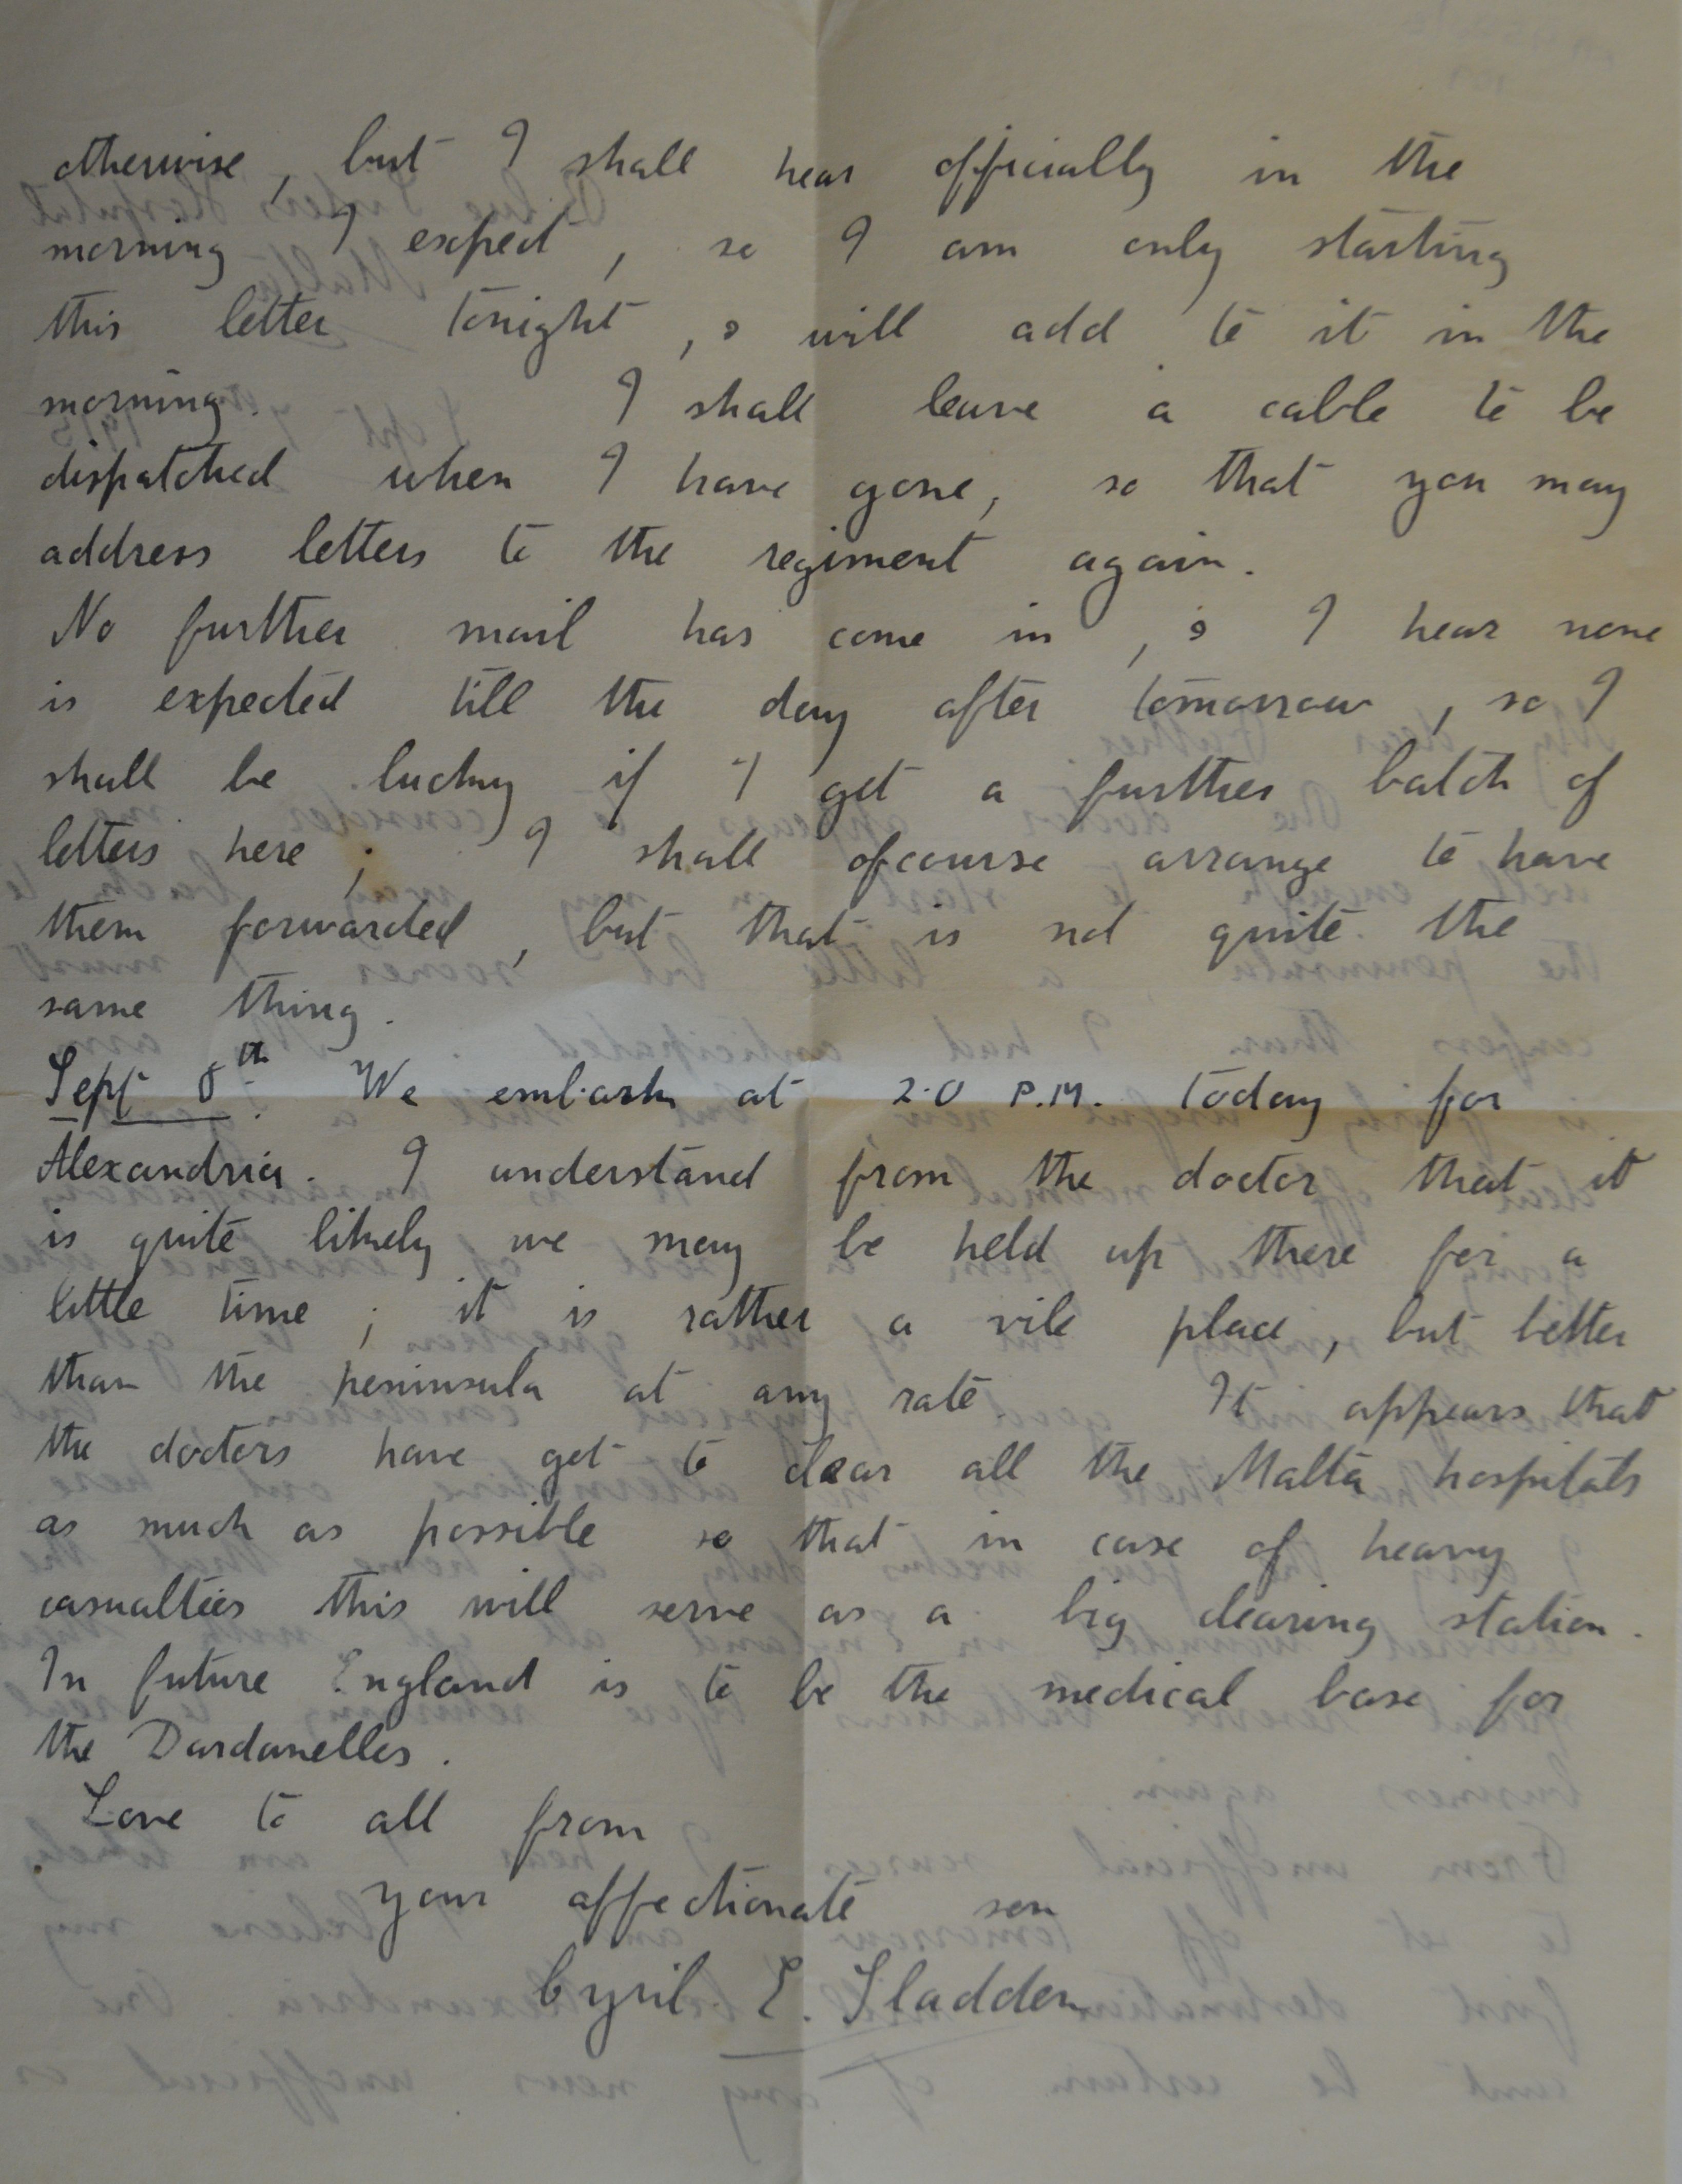 otherwise, but I shall hear officially in the
morning I expect, so I am only starting
this letter tonight, & will add to it in the
morning. I shall leave a cable to be
dispatched when I have gone, so that you may
address letters to the regiment again.
No further mail has come in, & I hear none
is expected till the day after tomorrow, so I
shall be lucky if I get a further batch of
letters here; I shall ofcourse arrange to have
them forwarded, but that is not quite the
same thing.
Sept 8th. We embark at 2.0 P.M. today for
Alexandria. I understand from the doctor that it
is quite likely we may be held up there for a
little time; it is rather a vile place, but better
than the peninsula at any rate It appears that
the doctors have got to clear all the Malta hospitals
as much as possible so that in case of heavy
casualties this will serve as a big clearing station.
In future England is to be the medical base for
the Dardanelles.
Love to all from
your affectionate son
Cyril E. Sladden